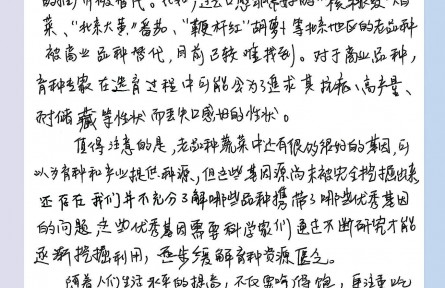 菜、"北京大黄"番茄、"鞭杆红"胡萝卜等北京地区的老品种
被商业品种替代,目前已较难找到。对于商业品种,
育种专家在选育过程中可能会为了追求其抗病、高产量、
耐储藏等性状而丢失口感好的性状。
值得注意的是,老品种蔬菜中还有很多很好的基因,可
以为育种和产业提供种源,但这些基因尚未被完全挖掘出来
还存在我们并不充分了解哪些品种携带了哪些优秀基因
的问题,这些优秀基因需要科学家们通过不断研究才能
逐渐挖掘利用,逐步缓解育种资源匮乏。
随着人们生活水平的提高,不仅要吃得饱,更注重吃